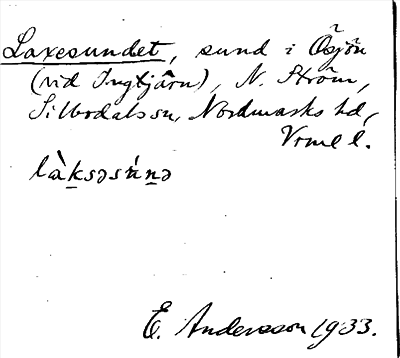 Laxesundet, sund i Ösjön
(vid Ingtjärn), N. Ström,
Silbodals sn, Nordmarks hd,
Vrml l.
làksəsǹ̠nə
E. Andersson 1933.